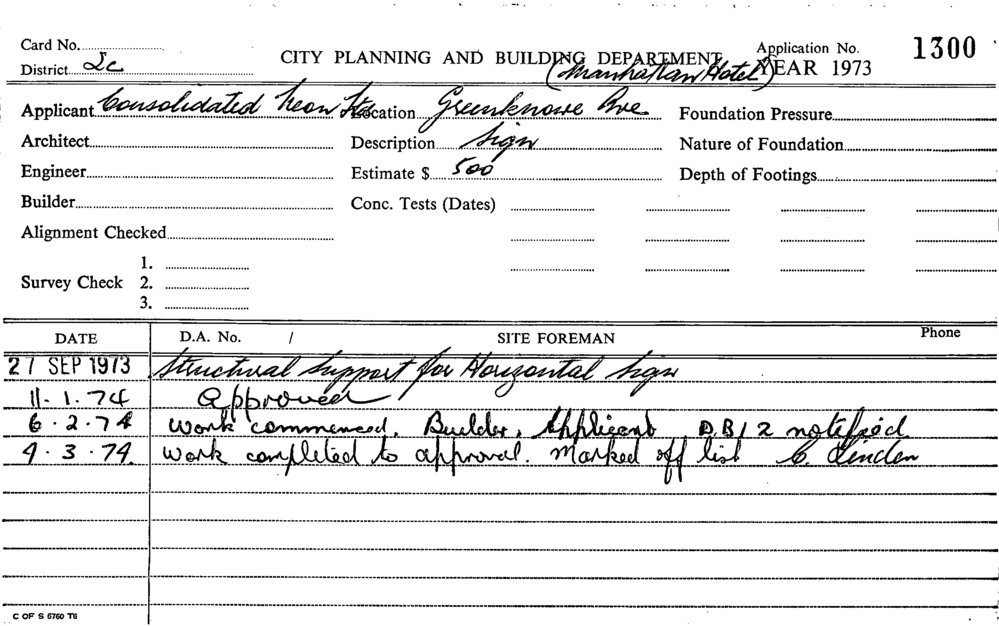 Card No.
District 2c
CITY PLANNING AND BUILDING DEPARTMENT
Application No. 1300
YEAR 1973
(Manhattan Hotel)
Applicant Consolidated Neon
Location Greenknowe Ave
Foundation Pressure
Architect
Description Sign
Nature of Foundation
Engineer
Estimate $ 500
Depth of Footings
Builder
Conc. Tests (Dates)
Alignment Checked
Survey Check
1.
2.
3.
DATE
D.A. No. /
SITE FOREMAN
Phone
27 SEP 1973 Structural support for Horizontal Sign
11.1.74 Approved
6.2.74 work commenced. Builder, Applicant D.B/2 notified
4.3.74. work completed to approval. Marked off list C. Linden
C OF S 6760 T6